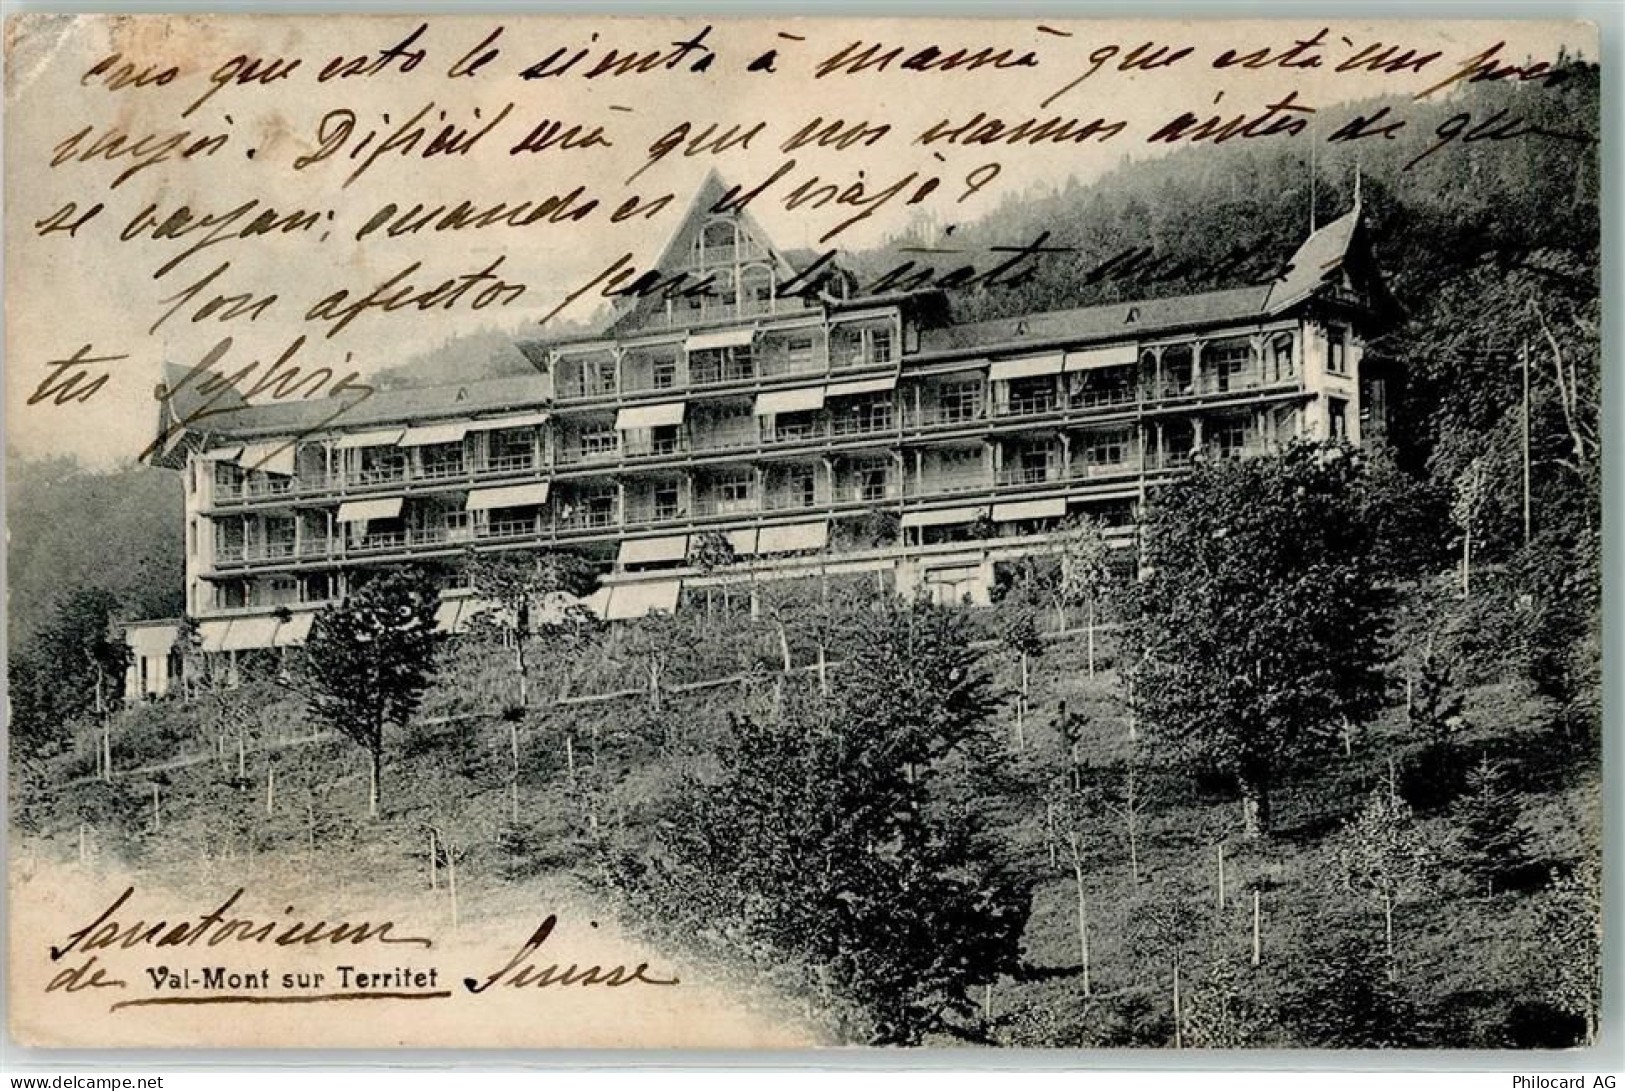 creo que esto le sienta à mamà que està un poco
mejor. Dificil serà que nos veamos àntes de que
se vayan; cuando es el viaje?
Con afectos para la nieta madre
tu Sylvio
Sanatorium
de Val-Mont sur Territet Suisse
delcampe.net
Philocard AG